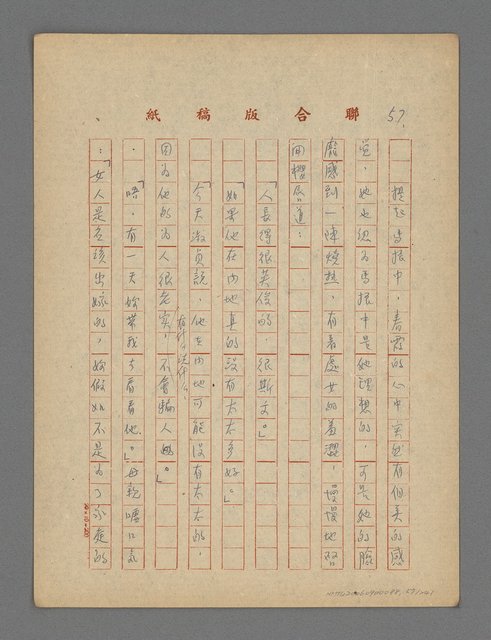 57.
聯合版稿紙
提起馬振中，春霞的心中突然有個美的感
覺，她也認為馬振中是她理想的，可是她的臉
龐感到一陣燒熱，有着處女的羞澀，慢慢地啓
回櫻唇道：
「人長得很英俊的，很斯文。」
「如果他在內地真的沒有太太多好。」
「今天淑貞說，他在內地可能沒有太太的，
有什么說什么，
因為他的為人很老實，不會騙人的。」
「唔，有一天妳帶我去看看他。」母親嘆口氣
：「女人是應該出嫁的，妳假如不是為了永慶的